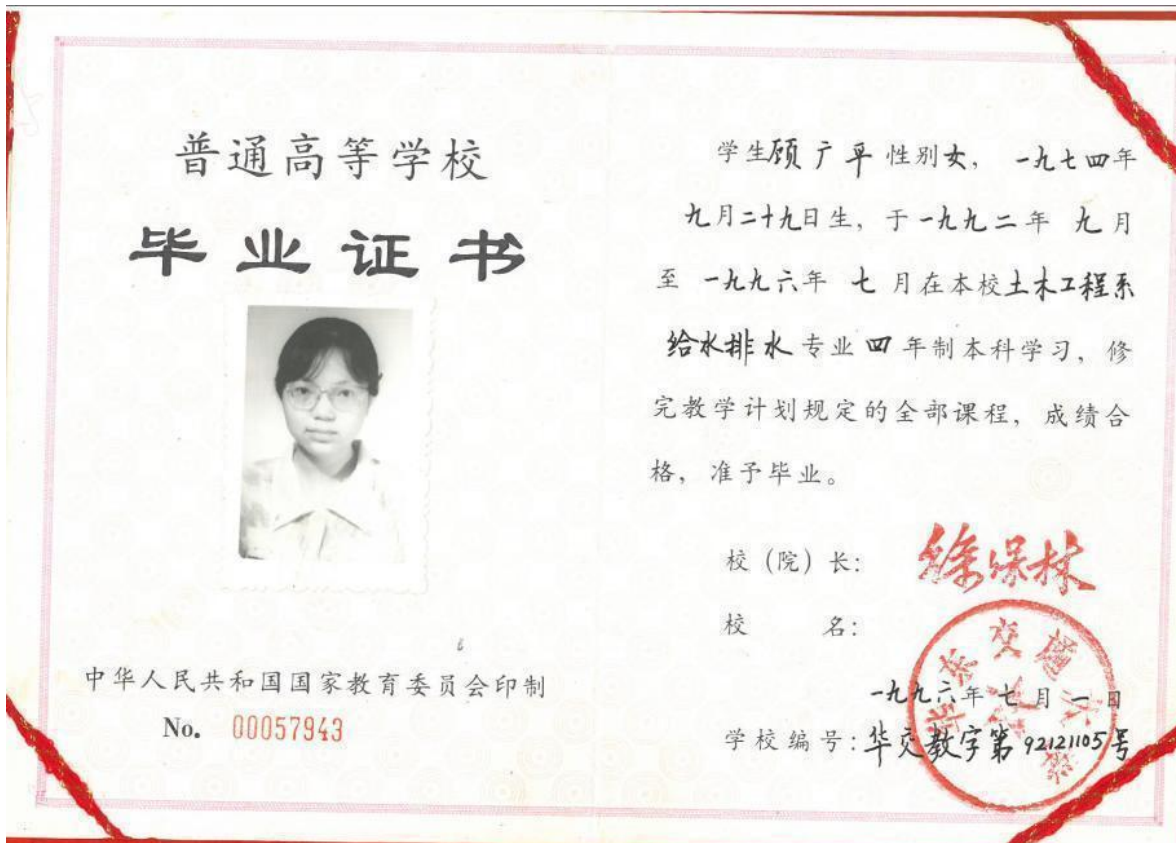 普通高等学校
毕业证书
中华人民共和国国家教育委员会印制
No. 00057943
学生顾广平性别女，一九七四年
九月二十九日生，于一九九二年 九月
至 一九九六年 七月在本校土木工程系
给水排水专业四年制本科学习，修
完教学计划规定的全部课程，成绩合
格，准予毕业。
校（院）长：徐保林
校 名：
华东交通大学
一九九六年七月一日
学校编号：华交教字第92121105号